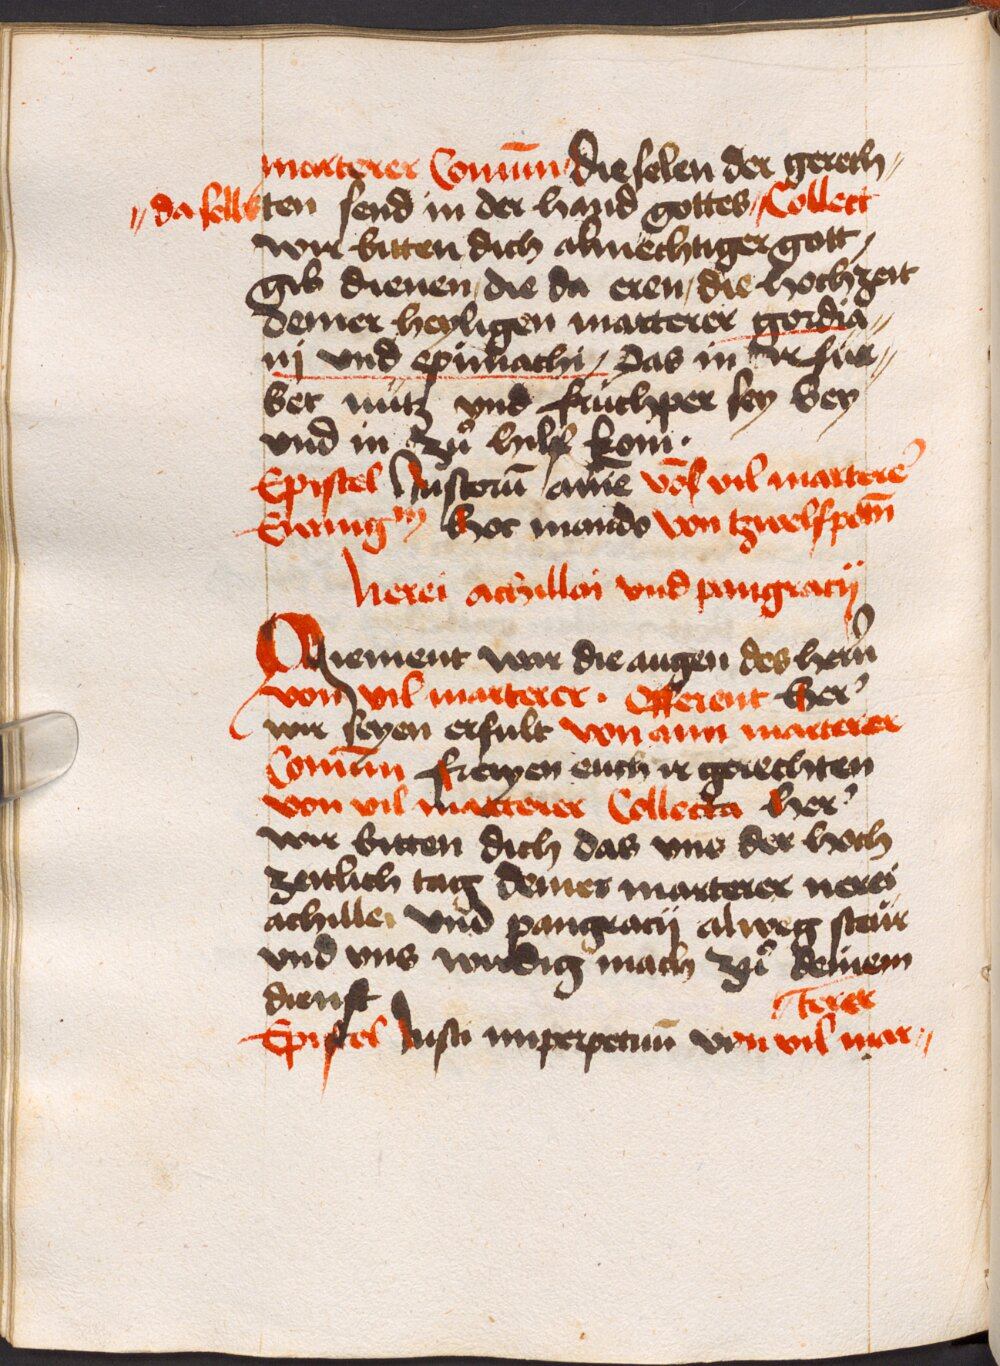 marterer Comūn die selen der gerech〃
〃 da selbs ten send in der hand gottes Collect
wir bitten dich almechtiger gott
gib dienen die da eren die hochzeit
deiner heyligen marterer gordia〃
nj vnd epimachi / das in Ir für〃
bet nütz vnd fruchper sey bey
vnd in zů hilf kom .
Epistel Justorū anime võ vil marterer
Ewangm hoc mando von tzwelfpotn
Nerei achillei vnd pangracij
Niement war die augen des hern
von vil marterer . Offerent her
wir seyen erfult von aim marterer
Comūn frewen euch ir gerechten
von vil marterer Collecta her
wir bitten dich das vns der hoch
zeitlich tag deiner marterer nerei
achillei vnd pangracij alweg steür
vnd vns wirdig mach zů deinem
dienst
Epistel Justi imperpetuū von vil mar〃
terer